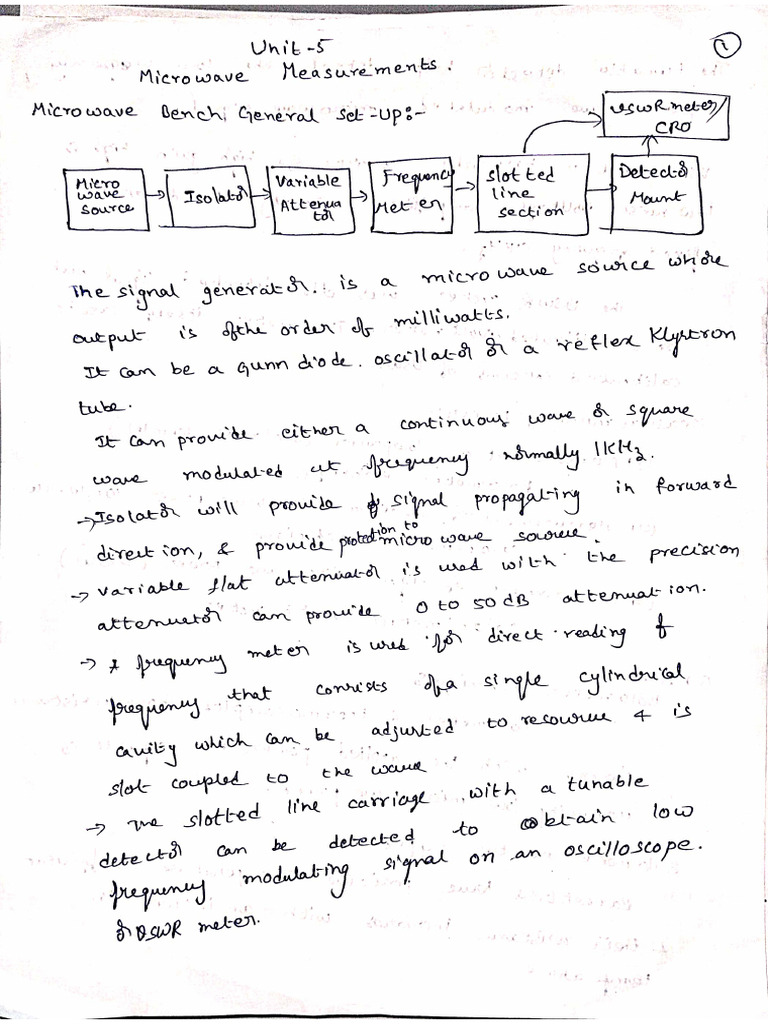 1
Unit-5
Microwave Measurements.
Microwave Bench General Set-Up:-
VSWR meter/
CRO
Micro
wave
Source
Isolator
Variable
Attenua
tor
Frequency
Meter
Slotted
line
section
Detector
Mount
The signal generator. is a microwave source whose
output is of the order of milliwatts.
It can be a Gunn diode. oscillator or a reflex Klystron
tube.
It can provide either a continuous wave or square
wave modulated at frequency normally 1KHz.
→ Isolator will provide signal propagating in forward
direction, & provide protection to microwave source.
→ variable flat attenuator is used with the precision
attenuator can provide 0 to 50 dB attenuation.
→ A frequency meter is used for direct reading of
frequency that consists of a single cylindrical
cavity which can be adjusted to resourue & is
slot coupled to the wave
→ The slotted line carriage with a tunable
detector can be detected to obtain low
frequency modulating signal on an oscilloscope.
or VSWR meter.